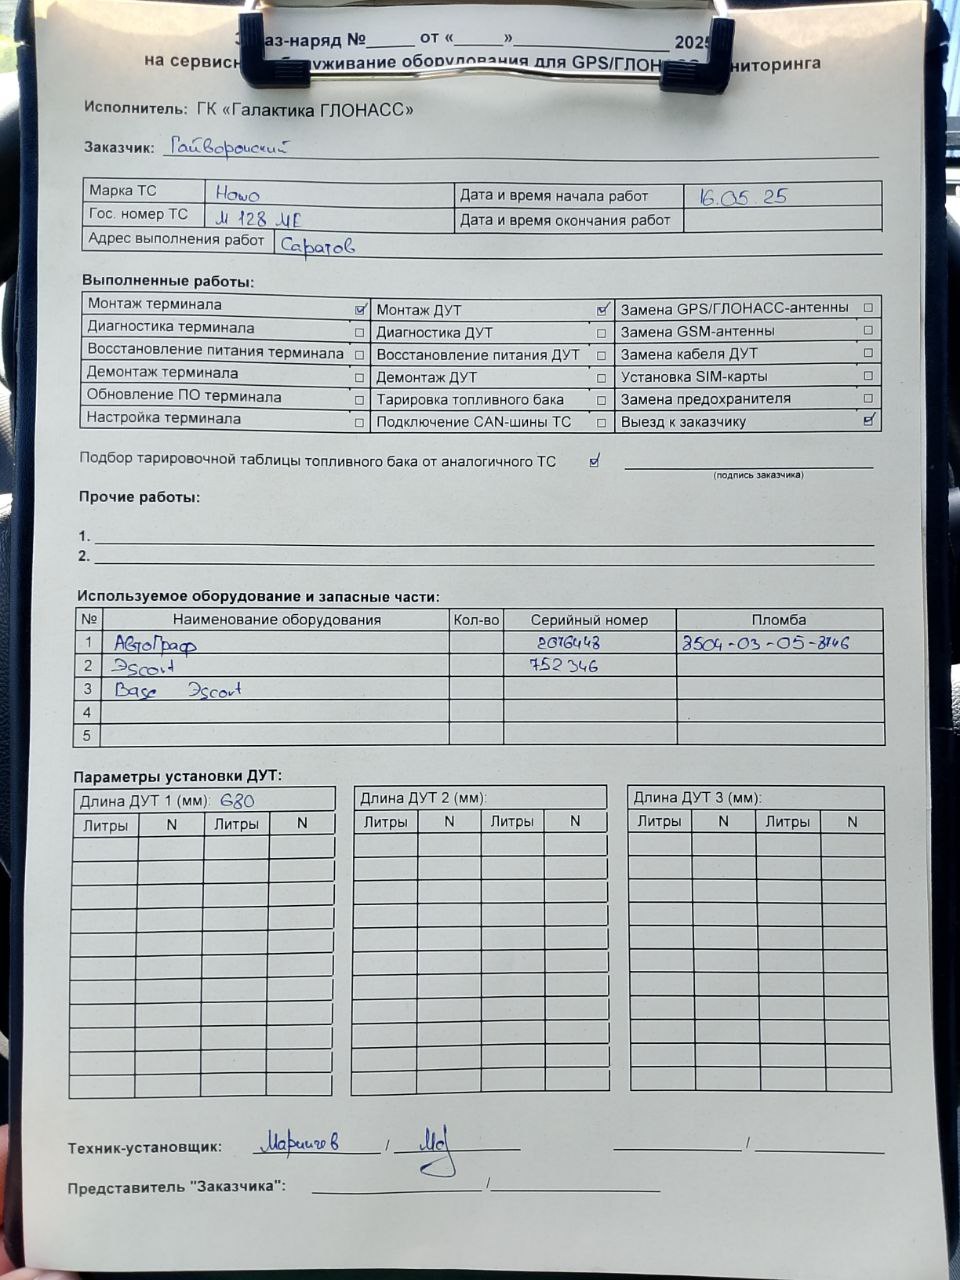 Заказ-наряд №_____ от «_____»________________ 2025
на сервисное обслуживание оборудования для GPS/ГЛОНАСС мониторинга
Исполнитель: ГК «Галактика ГЛОНАСС»
Заказчик: Гайворонский
Марка ТС Howo Дата и время начала работ 16.05.25
Гос. номер ТС М 128 МЕ Дата и время окончания работ
Адрес выполнения работ Саратов
Выполненные работы:
Монтаж терминала ☑ Монтаж ДУТ ☑ Замена GPS/ГЛОНАСС-антенны ☐
Диагностика терминала ☐ Диагностика ДУТ ☐ Замена GSM-антенны ☐
Восстановление питания терминала ☐ Восстановление питания ДУТ ☐ Замена кабеля ДУТ ☐
Демонтаж терминала ☐ Демонтаж ДУТ ☐ Установка SIM-карты ☐
Обновление ПО терминала ☐ Тарировка топливного бака ☐ Замена предохранителя ☐
Настройка терминала ☐ Подключение CAN-шины ТС ☐ Выезд к заказчику ☑
Подбор тарировочной таблицы топливного бака от аналогичного ТС ☑
(подпись заказчика)
Прочие работы:
1.
2.
Используемое оборудование и запасные части:
№ Наименование оборудования Кол-во Серийный номер Пломба
1 АвтоГраф 2076448 3504-03-05-3746
2 Эscort 752346
3 Base Эscort
4
5
Параметры установки ДУТ:
Длина ДУТ 1 (мм): 680 Длина ДУТ 2 (мм): Длина ДУТ 3 (мм):
Литры N Литры N Литры N Литры N Литры N Литры N
Техник-установщик: /
Представитель "Заказчика": /